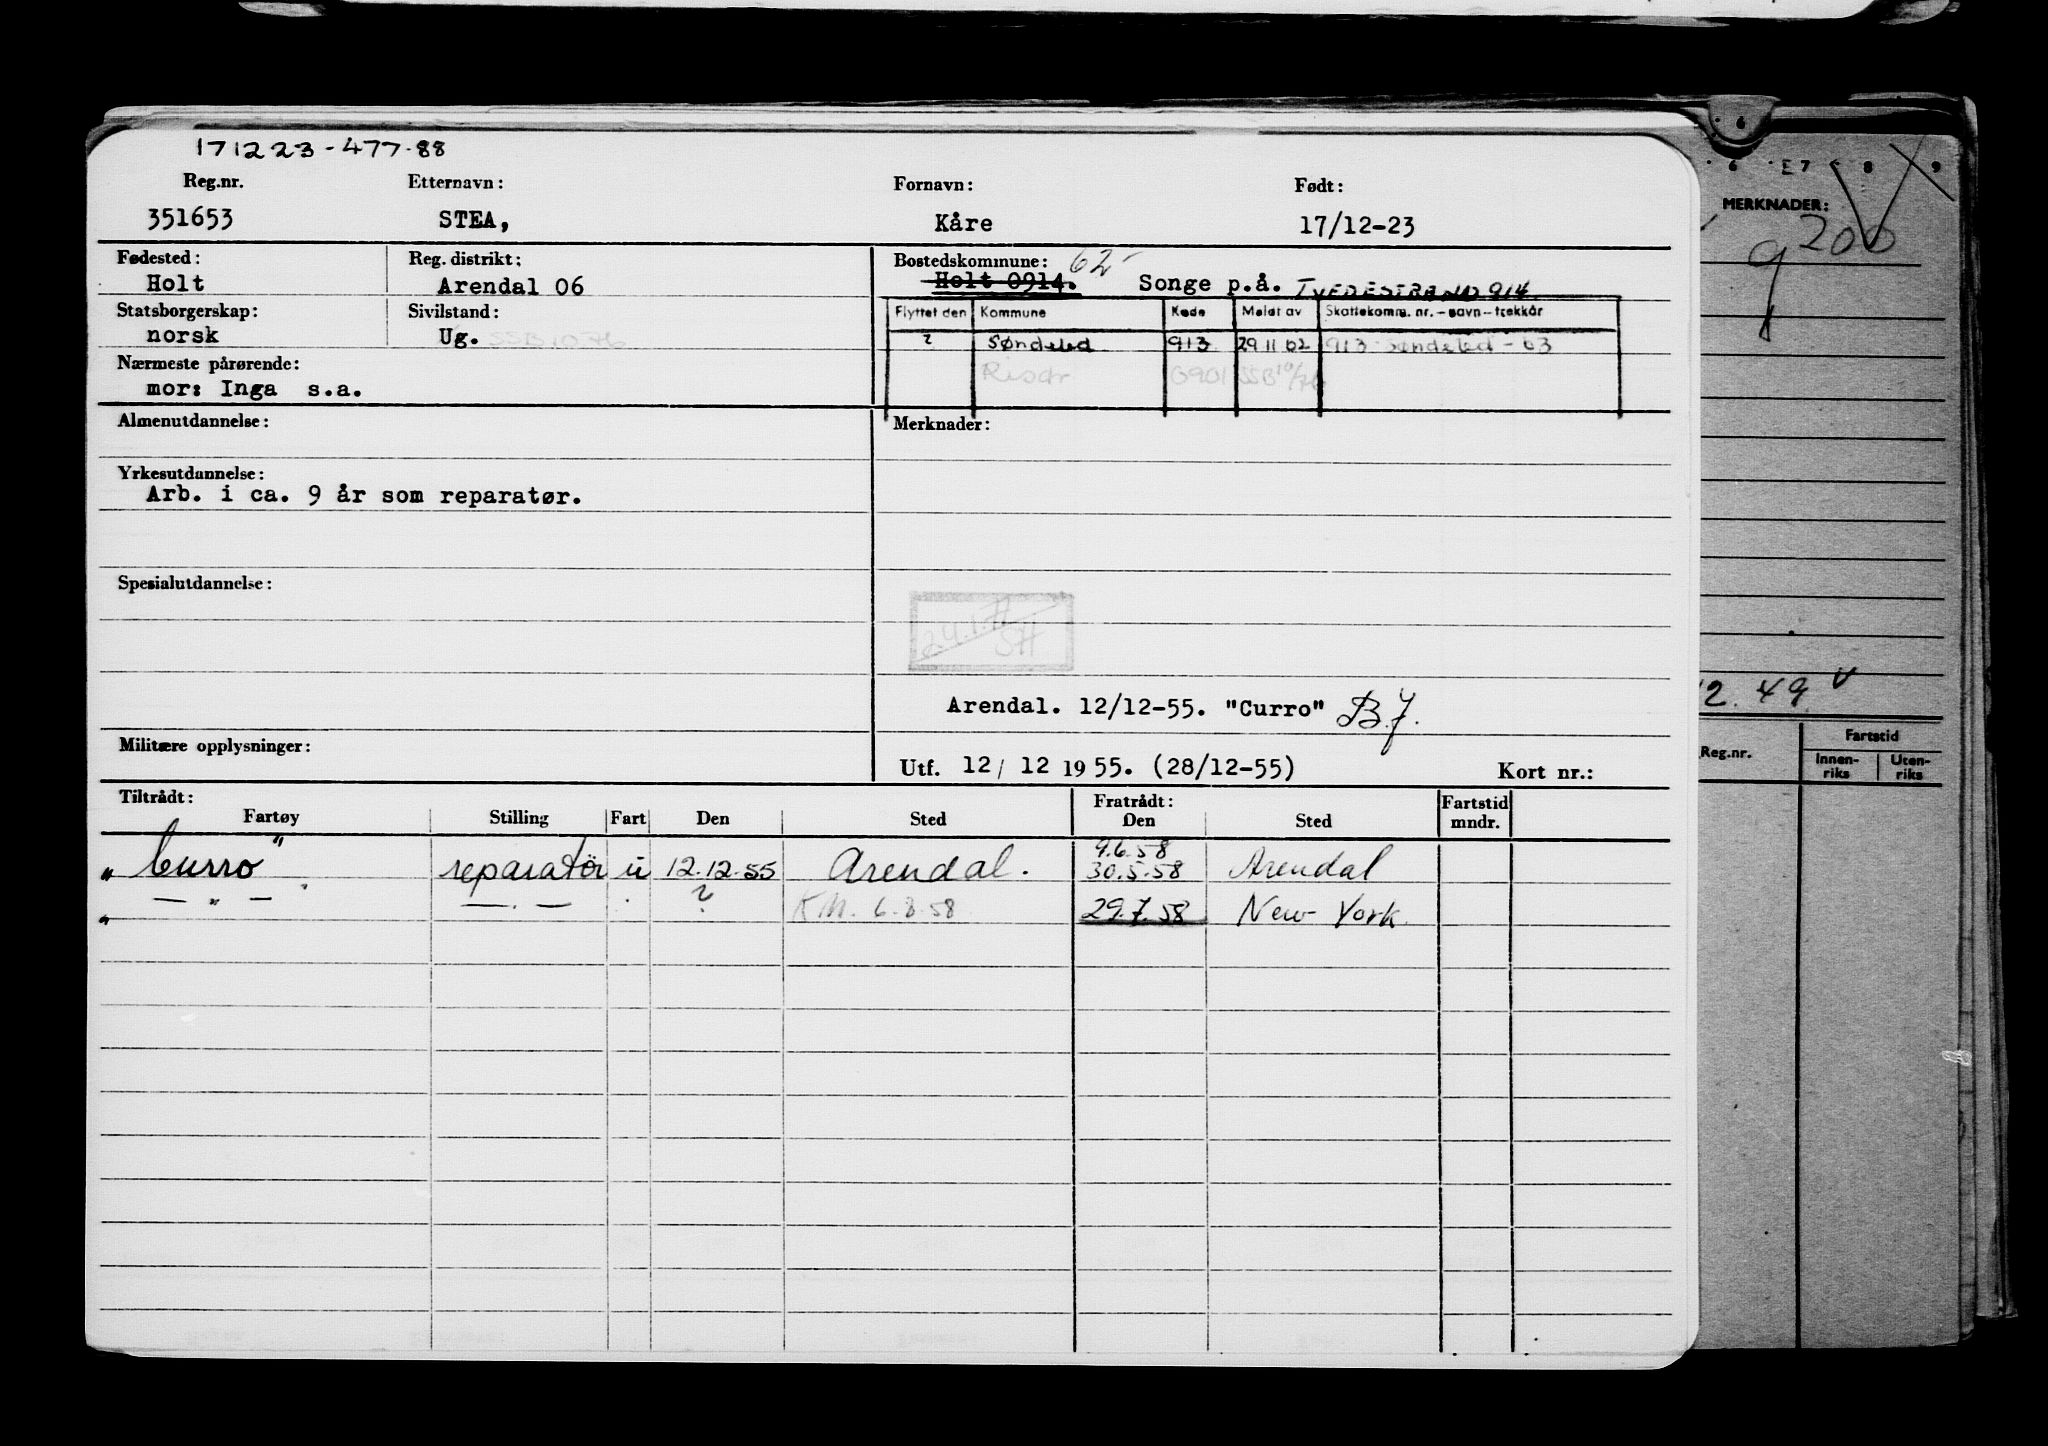 171223-477.88
Reg.nr. Etternavn: Fornavn: Født:
351653 STEA, Kåre 17/12-23
Fødested: Reg. distrikt: Bostedskommune: 62-
Holt Arendal 06 Holt 0914. Songe p.å. TVEDESTRAND 914.
Statsborgerskap: Sivilstand: Flyttet den Kommune Kode Meldt av Skattekomm. nr. - navn - trekkår
norsk Ug. SSB 10 76 ? Søndeled 913 29 11 62 913 Søndeled - 63
Nærmeste pårørende: Risør 0901 SSB 10/76
mor: Inga s.a.
Almenutdannelse: Merknader:
Yrkesutdannelse:
Arb. i ca. 9 år som reparatør.
Spesialutdannelse:
24.1.71
SH
Arendal. 12/12-55. "Curro" B.J.
Militære opplysninger:
Utf. 12/ 12 1955. (28/12-55) Kort nr.:
Tiltrådt: Fratrådt: Fartstid
Fartøy Stilling Fart Den Sted Den Sted mndr.
9.6.58
"Curro" reparatør u 12.12.55 Arendal. 30.5.58 Arendal
— " — — . — ? K.M. 6.8.58. 29.7.58 New York.
6 7 8 9
MERKNADER:
9200
12.49 v
Reg.nr. Fartstid
Innen-riks Uten-riks